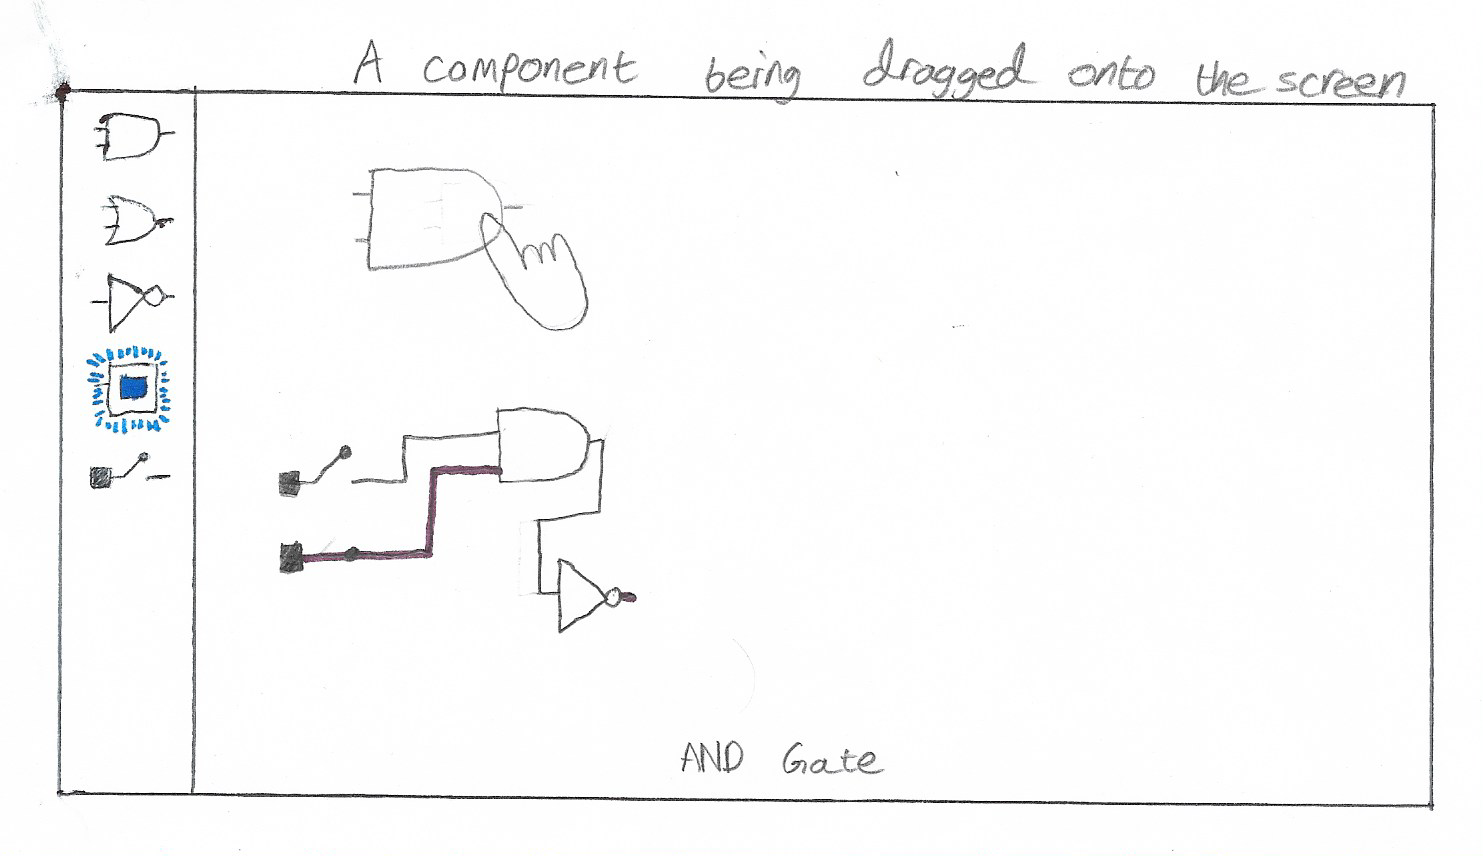 A component being dragged onto the screen
AND Gate